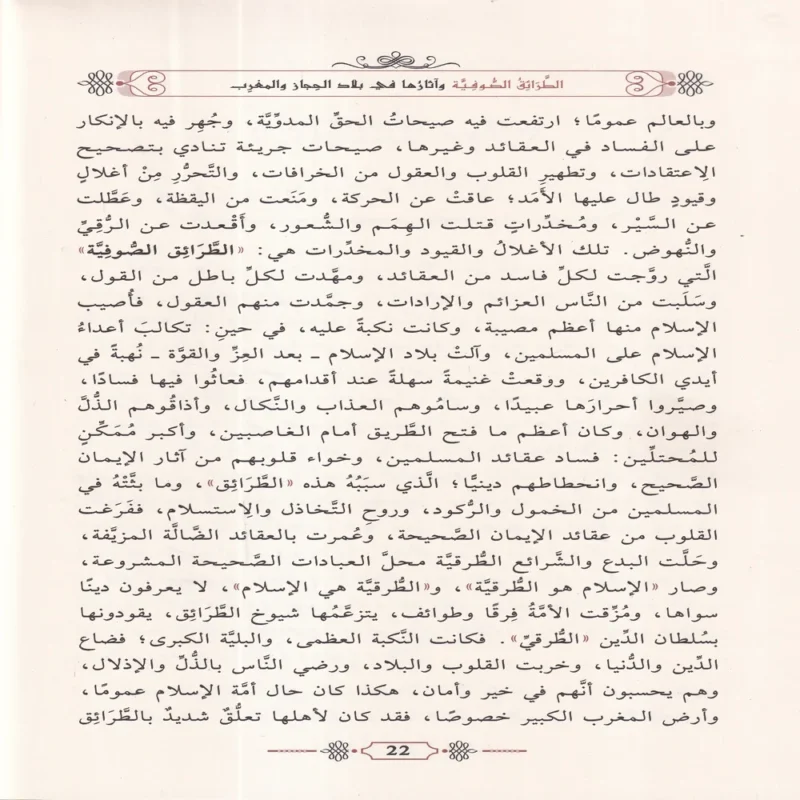 الطَّرَائِقُ الصُّوفِيَّة وآثارُها في بلاد الحِجاز والمغرِب
وبالعالم عمومًا؛ ارتفعت فيه صيحاتُ الحقِّ المدوِّيَّة، وجُهِر فيه بالإنكار
على الفساد في العقائد وغيرها، صيحات جريئة تنادي بتصحيح
الاِعتقادات، وتطهيرِ القلوب والعقول من الخرافات، والتَّحرُّرِ مِنْ أغلالٍ
وقيودٍ طال عليها الأَمَد؛ عاقتْ عن الحركة، ومَنَعت من اليقظة، وعَطَّلت
عن السَّيْر، ومُخدِّراتٍ قتلت الهِمَم والشُّعور، وأَقْعدت عن الرُّقِيِّ
والنُّهوض. تلك الأغلالُ والقيود والمخدِّرات هي: «الطَّرَائِق الصُّوفِيَّة»
الَّتي روَّجت لكلِّ فاسد من العقائد، ومهَّدت لكلِّ باطل من القول،
وسَلَبت من النَّاس العزائم والإرادات، وجمَّدت منهم العقول، فأُصيب
الإسلام منها أعظم مصيبة، وكانت نكبةً عليه، في حينِ: تكالبَ أعداءُ
الإسلام على المسلمين، وآلتْ بلاد الإسلام ـ بعد العِزِّ والقوَّة ـ نُهبةً في
أيدي الكافرين، ووقعتْ غنيمةً سهلةً عند أقدامهم، فعاثُوا فيها فسادًا،
وصيَّروا أحرارَها عبيدًا، وسامُوهم العذاب والنَّكال، وأذاقُوهم الذُّلَّ
والهوان، وكان أعظم ما فتح الطَّريق أمام الغاصبين، وأكبر مُمَكِّنٍ
للمُحتلِّين: فساد عقائد المسلمين، وخواء قلوبهم من آثار الإيمان
الصَّحيح، وانحطاطهم دينيًّا؛ الَّذي سبَبُهُ هذه «الطَّرَائِق»، وما بثَّتْهُ في
المسلمين من الخمول والرُّكود، وروحِ التَّخاذل والاِستسلام، ففَرَغت
القلوب من عقائد الإيمان الصَّحيحة، وعُمرت بالعقائد الضَّالَّة المزيَّفة،
وحَلَّت البدع والشَّرائع الطُّرقيَّة محلَّ العبادات الصَّحيحة المشروعة،
وصار «الإسلام هو الطُّرقيَّة»، و«الطُّرقيَّة هي الإسلام»، لا يعرفون دينًا
سواها، ومُزِّقت الأمَّةُ فِرقًا وطوائف، يتزعَّمُها شيوخ الطَّرَائِق، يقودونها
بسُلطان الدِّين «الطُّرقيِّ». فكانت النَّكبة العظمى، والبليَّة الكبرى؛ فضاع
الدِّين والدُّنيا، وخربت القلوب والبلاد، ورضي النَّاس بالذُّلِّ والإذلال،
وهم يحسبون أنَّهم في خير وأمان، هكذا كان حال أمَّة الإسلام عمومًا،
وأرض المغرب الكبير خصوصًا، فقد كان لأهلها تعلُّقٌ شديدٌ بالطَّرَائِق
22